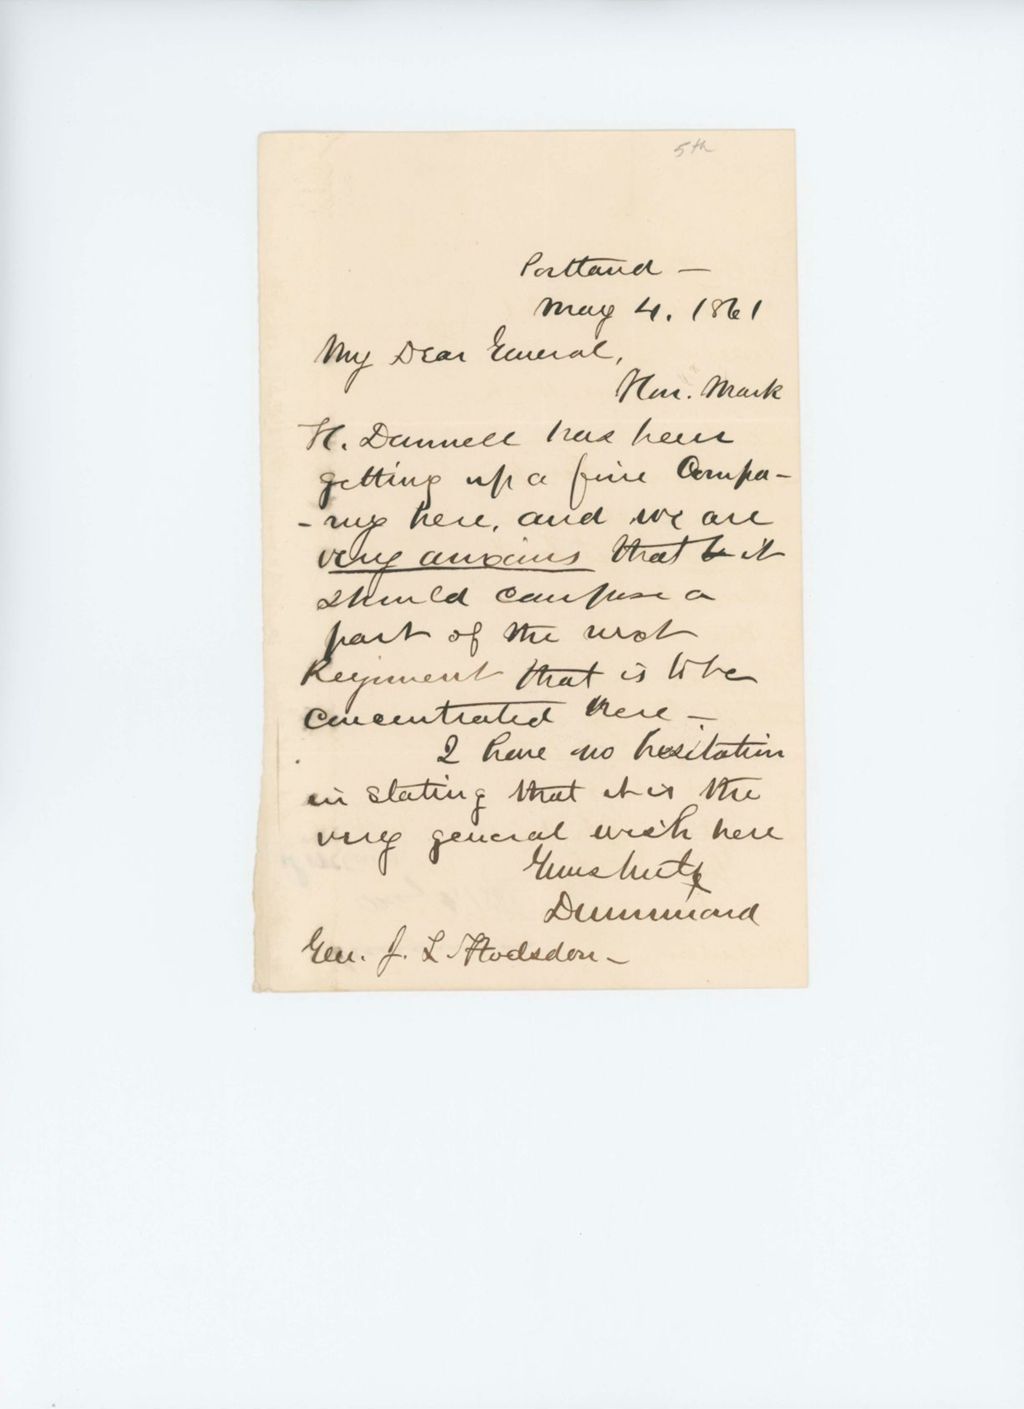 5th
Portland —
May 4. 1861
My Dear General,
Hon. Mark
H. Dunnell has been
getting up a fine Compa-
-ny here, and we are
very anxious that it
should compose a
part of the next
Regiment that is to be
concentrated here —
I have no hesitation
in stating that it is the
very general wish here
Yours truly
Drummond
Gen. J. L Hodsdon —